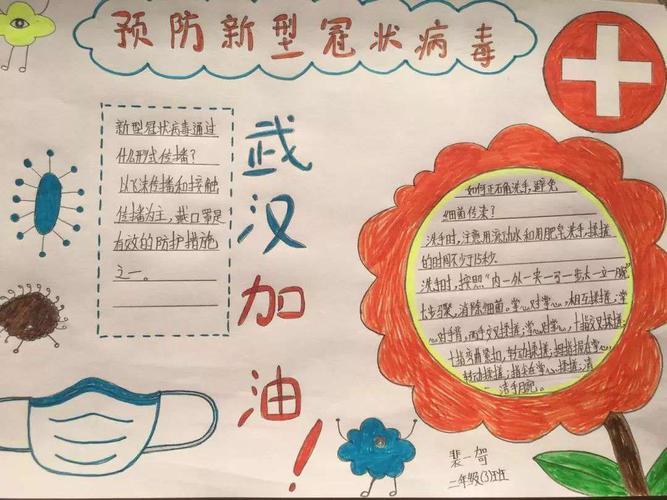 预防新型冠状病毒
新型冠状病毒通过
什么形式传播？
以飞沫传播和接触
传播为主，戴口罩是
有效的防护措施
之一。
武汉加油！
如何正确洗手，避免
细菌传来？
洗手时，注意用流动水和用肥皂洗手，揉搓
的时间不少于15秒
洗手时，按照“内一外一夹一弓一大一立一腕”
七步骤，消除细菌。掌心对掌心，相互揉搓，掌
心对手背，两手交叉揉搓，掌心对掌心，十指交叉揉搓
十指弯曲紧扣，转动揉搓，拇指握在掌心，
转动揉搓；指尖在掌心揉搓；清
洁手腕。
裴一
二年级(3)班